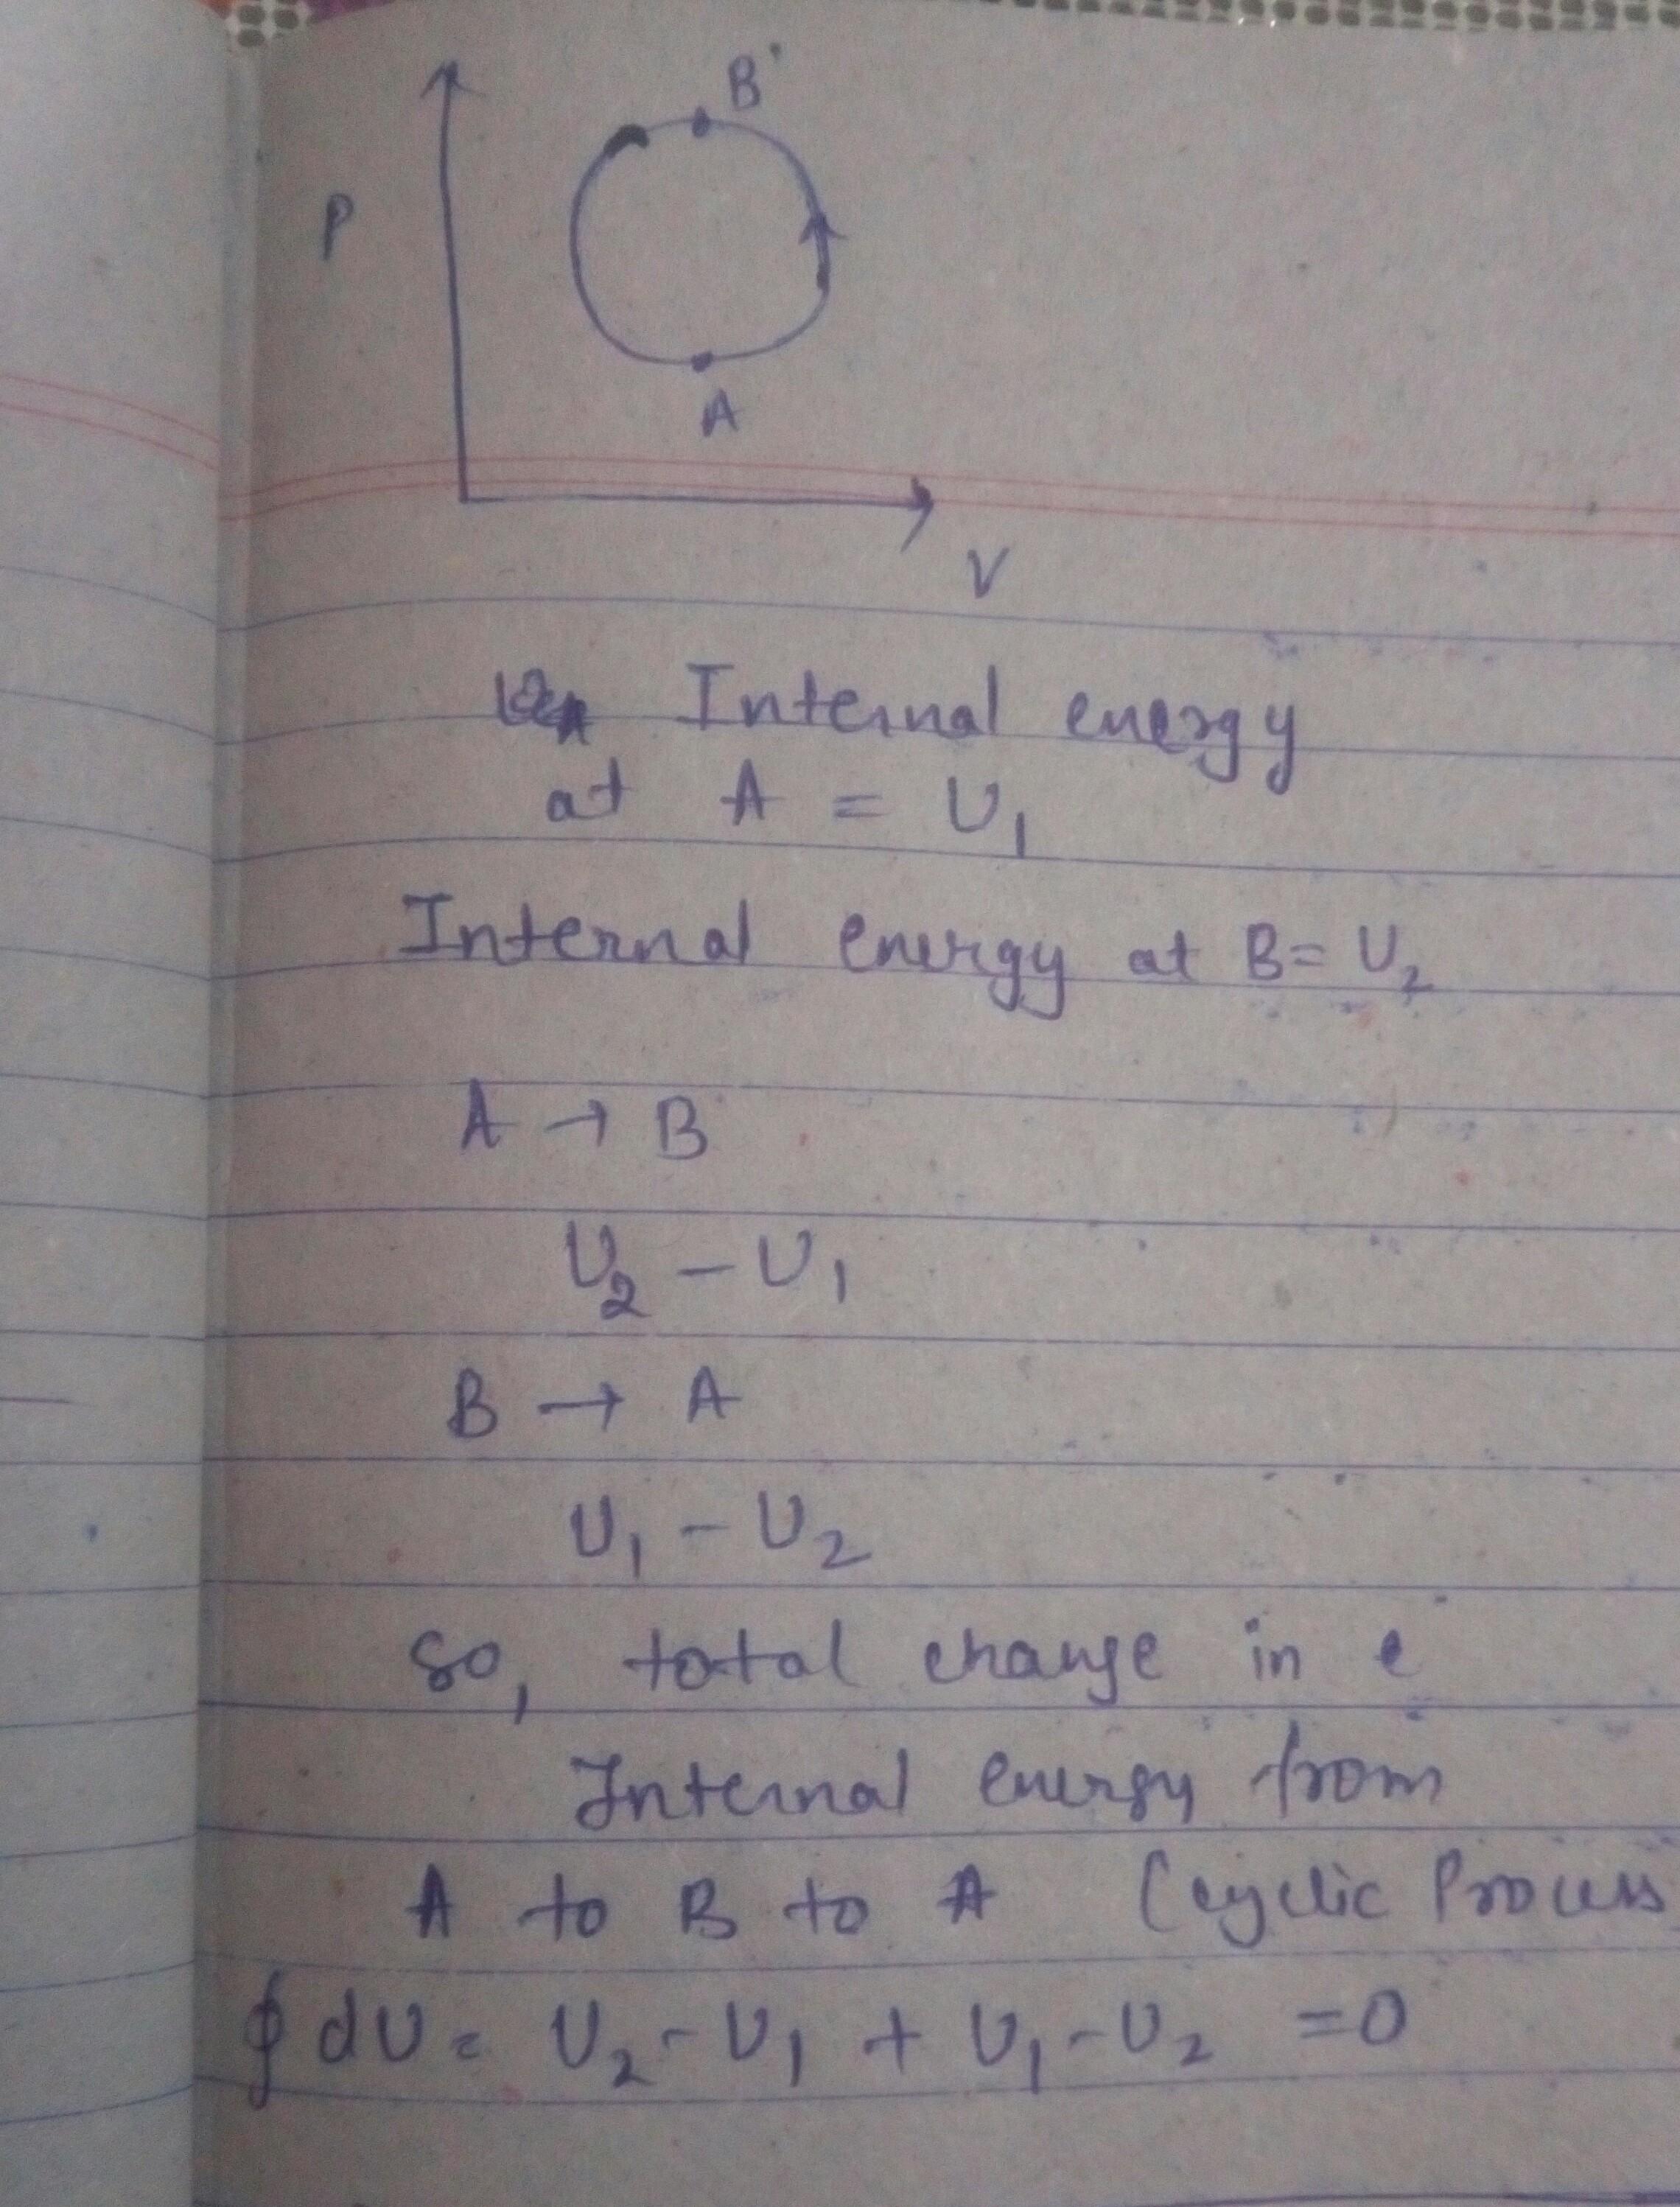 B
P
A
V
Internal energy
at A = U₁
Internal energy at B = U₂
A → B
U₂ - U₁
B → A
U₁ - U₂
So, total change in e
Internal energy from
A to B to A (cyclic Process
∮ dU = U₂ - U₁ + U₁ - U₂ = 0